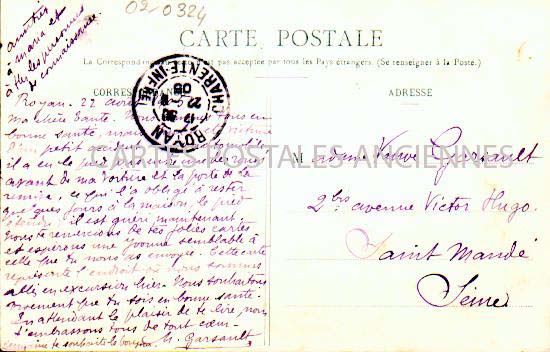 02-0324
amitiés
à maria et
les personnes
de connaissance.
CARTE POSTALE
La Correspondance pas acceptée par tous les Pays étrangers. (Se renseigner à la Poste.)
CORRES
ADRESSE
ROYAN
CHARENTE-INFRE
22
08
Royan. 22
Ma chère Tante. Nous tous en
bonne santé,
D'un petit
il a eu le pied
avant de ma voiture et la porte de la
remise, ce qui l'a obligé à rester
quelques jours à la maison, le pied
étendu, il est guéri maintenant.
Nous te remercions de tes jolies cartes
et espérons une semblable à
celle que tu nous as envoyée. Cette carte
représente l'endroit où nous sommes
allés en excursion hier. Nous souhaitons
vivement que tu sois en bonne santé.
En attendant le plaisir de te lire, nous
t'embrassons tous de tout cœur.
te souhaite le bonjour M. Garsault
CARTES POSTALES ANCIENNES
Madame Veuve Garsault
2 bis avenue Victor Hugo.
Saint Mandé
Seine